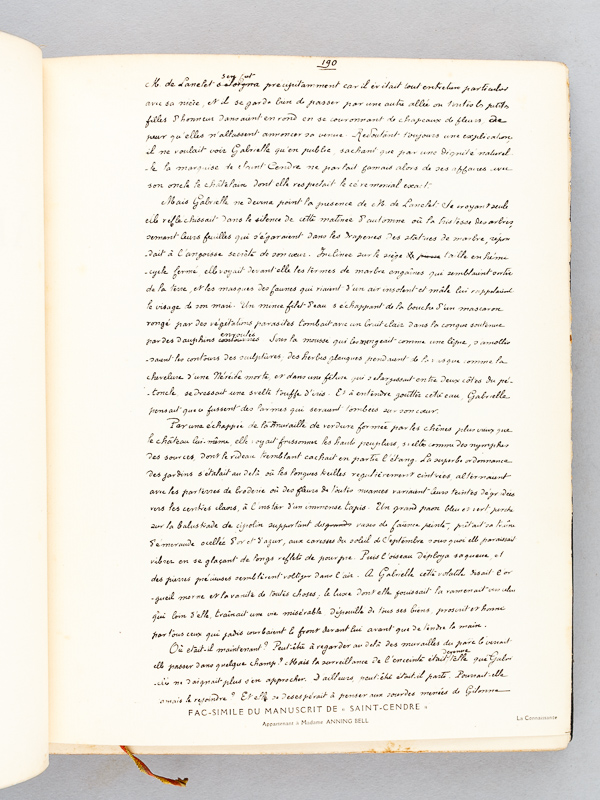 190
M. de Lanelet s'éloigna précipitamment car il évitait tout entretien particulier
avec sa nièce, et il se garda bien de passer par une autre allée où toutes les petites
filles d'honneur dansaient en rond en se couronnant de chapeaux de fleurs, de
peur qu'elles n'allassent annoncer sa venue. Redoutant toujours une explication
il ne voulait voir Gabrielle qu'en public sachant que par une dignité naturel-
le la marquise de Saint Cendre ne parlait jamais de ses affaires avec
son oncle le châtelain dont elle respectait le cérémonial exact.
Mais Gabrielle ne devina point la présence de M. de Lanelet. Se croyant seule
elle réfléchissait dans le silence de cette matinée d'automne où la tristesse des arbres,
semant leurs feuilles qui s'égaraient dans les draperies des statues de marbre, répon
dait à l'angoisse secrète de son cœur. Inclinée sur le siège taillé en hémi
cycle fermé elle voyait devant elle les termes de marbre engainés qui semblaient sortir
de la terre, et les masques des faunes qui riaient d'un air insolent et mâle lui rappelaient
le visage de son mari. Un mince filet d'eau s'échappant de la bouche d'un mascaron
rongé par des végétations parasites tombait avec un bruit clair dans la conque soutenue
par des dauphins enroulés. Sous la mousse qui les rongeait comme une lèpre, s'amollis-
saient les contours des sculptures; des herbes glauques pendaient de la vasque comme la
chevelure d'une Néréide morte, et dans une fêlure qui s'élargissait entre deux côtes du pé-
toncle se dressait une svelte touffe d'iris. Et à entendre goutter cette eau Gabrielle
pensait que ce fussent des larmes qui seraient tombées sur son cœur.
Par une échappée de la muraille de verdure formée par les chênes plus vieux que
le château lui-même, elle voyait frissonner les hauts peupliers, sveltes comme des nymphes
des sources, dont le rideau tremblant cachait en partie l'étang. La superbe ordonnance
des jardins s'étalait au delà où les longues treilles régulièrement cintrées alternaient
avec les parterres de broderie où des fleurs de toutes nuances variaient leurs teintes dégradées
vers les centres clairs, à l'instar d'un immense tapis. Un grand paon bleu et vert perché
sur la balustrade de cipolin supportant des vases de faïence peinte, prêtait sa traîne
d'émeraude ocellée d'or et d'azur, aux caresses du soleil de Septembre sous quoi elle paraissait
vibrer en se glaçant de longs reflets de pourpre. Puis l'oiseau déploya sa queue et
des pierres précieuses semblèrent voltiger dans l'air. A Gabrielle cette volatile disait l'or
gueil morne et la vanité de toutes choses; le luxe dont elle jouissait la ramenait vers celui
qui loin d'elle, traînait une vie misérable dépouillé de tous ses biens, proscrit et honni
par tous ceux qui jadis courbaient le front devant lui avant que de tendre la main.
Où était-il maintenant? Peut-être à regarder au delà des murailles du parc le verrait
elle passer dans quelque champ? Mais la surveillance de l'enceinte était devenue telle que Gabri
elle ne daignait plus s'en approcher. D'ailleurs, peut-être était-il parti. Pourrait-elle
jamais le rejoindre? Et elle se désespérait à penser aux sourdes menées de Gilonne
FAC-SIMILE DU MANUSCRIT DE « SAINT-CENDRE »
Appartenant à Madame ANNING BELL
La Connaissance